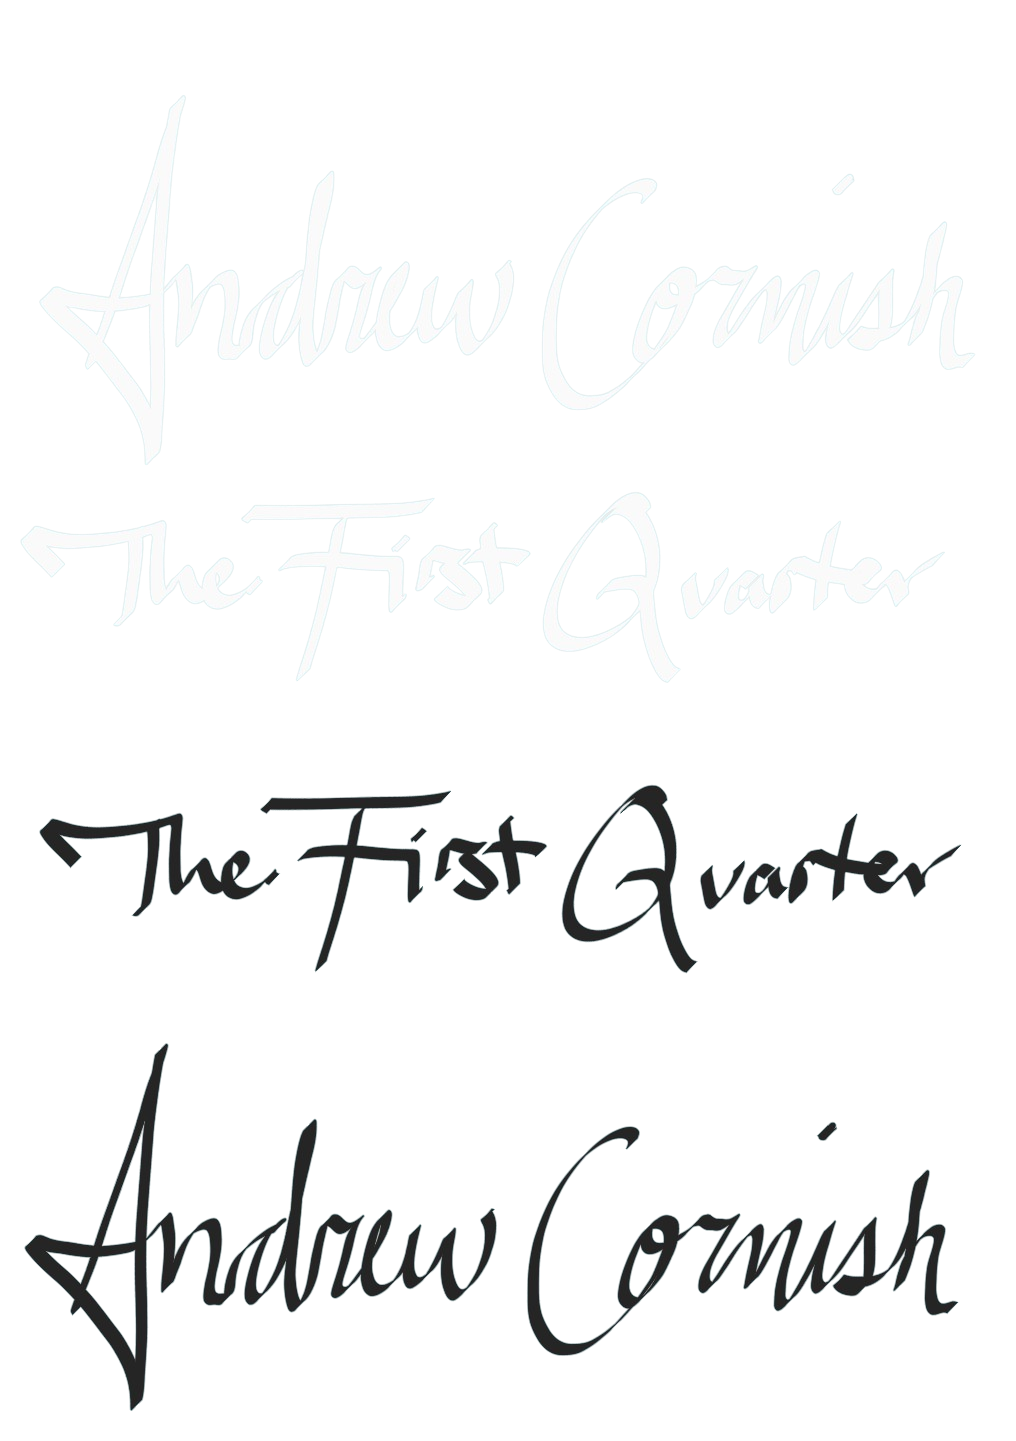 Andrew Cornish
The First Quarter
The First Quarter
Andrew Cornish